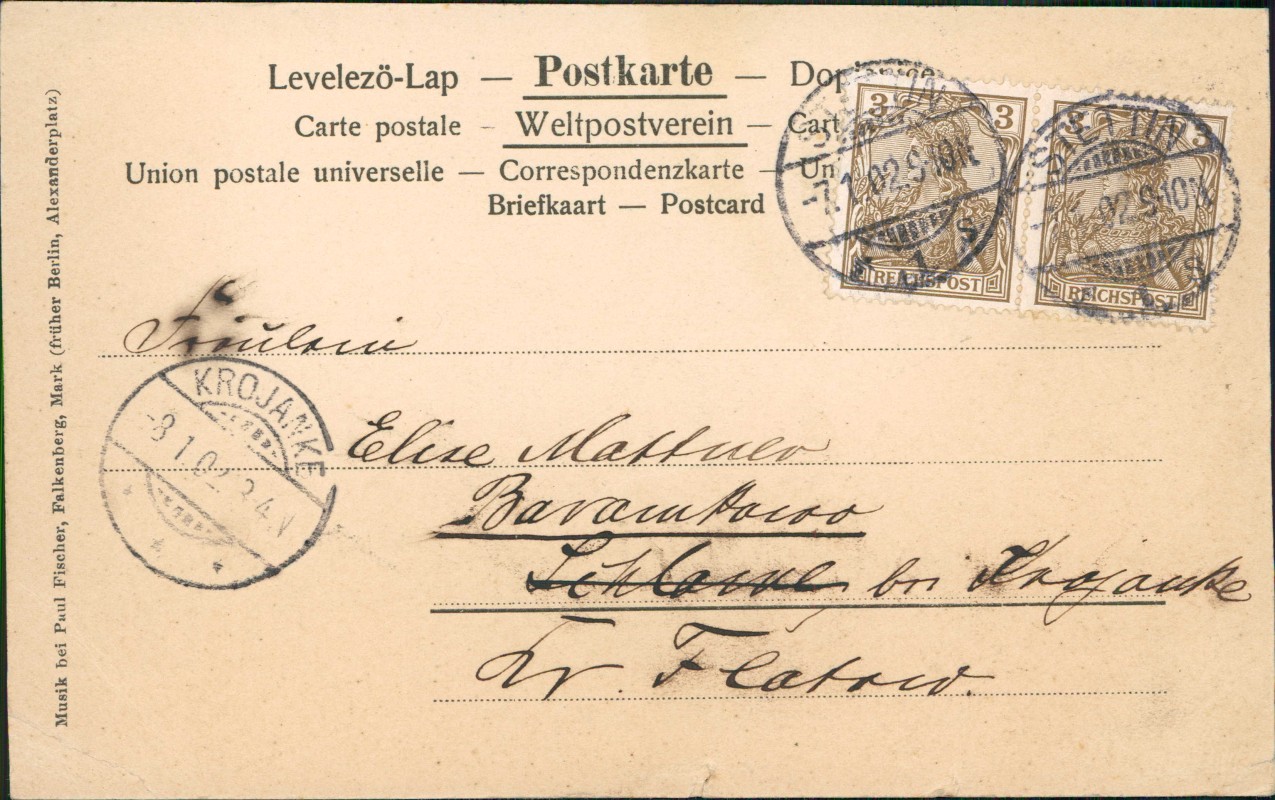 Levelezö-Lap — Postkarte — Dop
Carte postale - Weltpostverein — Cart
Union postale universelle — Correspondenzkarte — Un
Briefkaart — Postcard
3 3 3 3
REICHSPOST REICHSPOST
STETTIN
7.1.02.9-10N.
1 S
STETTIN
02.9-10N.
S
Fräulein
KROJANKE
-8 1.02. 3-4.V
Elise Mattner
Schlawe, bei Krojanke
Kr. Flatow.
Musik bei Paul Fischer, Falkenberg, Mark (früher Berlin, Alexanderplatz)